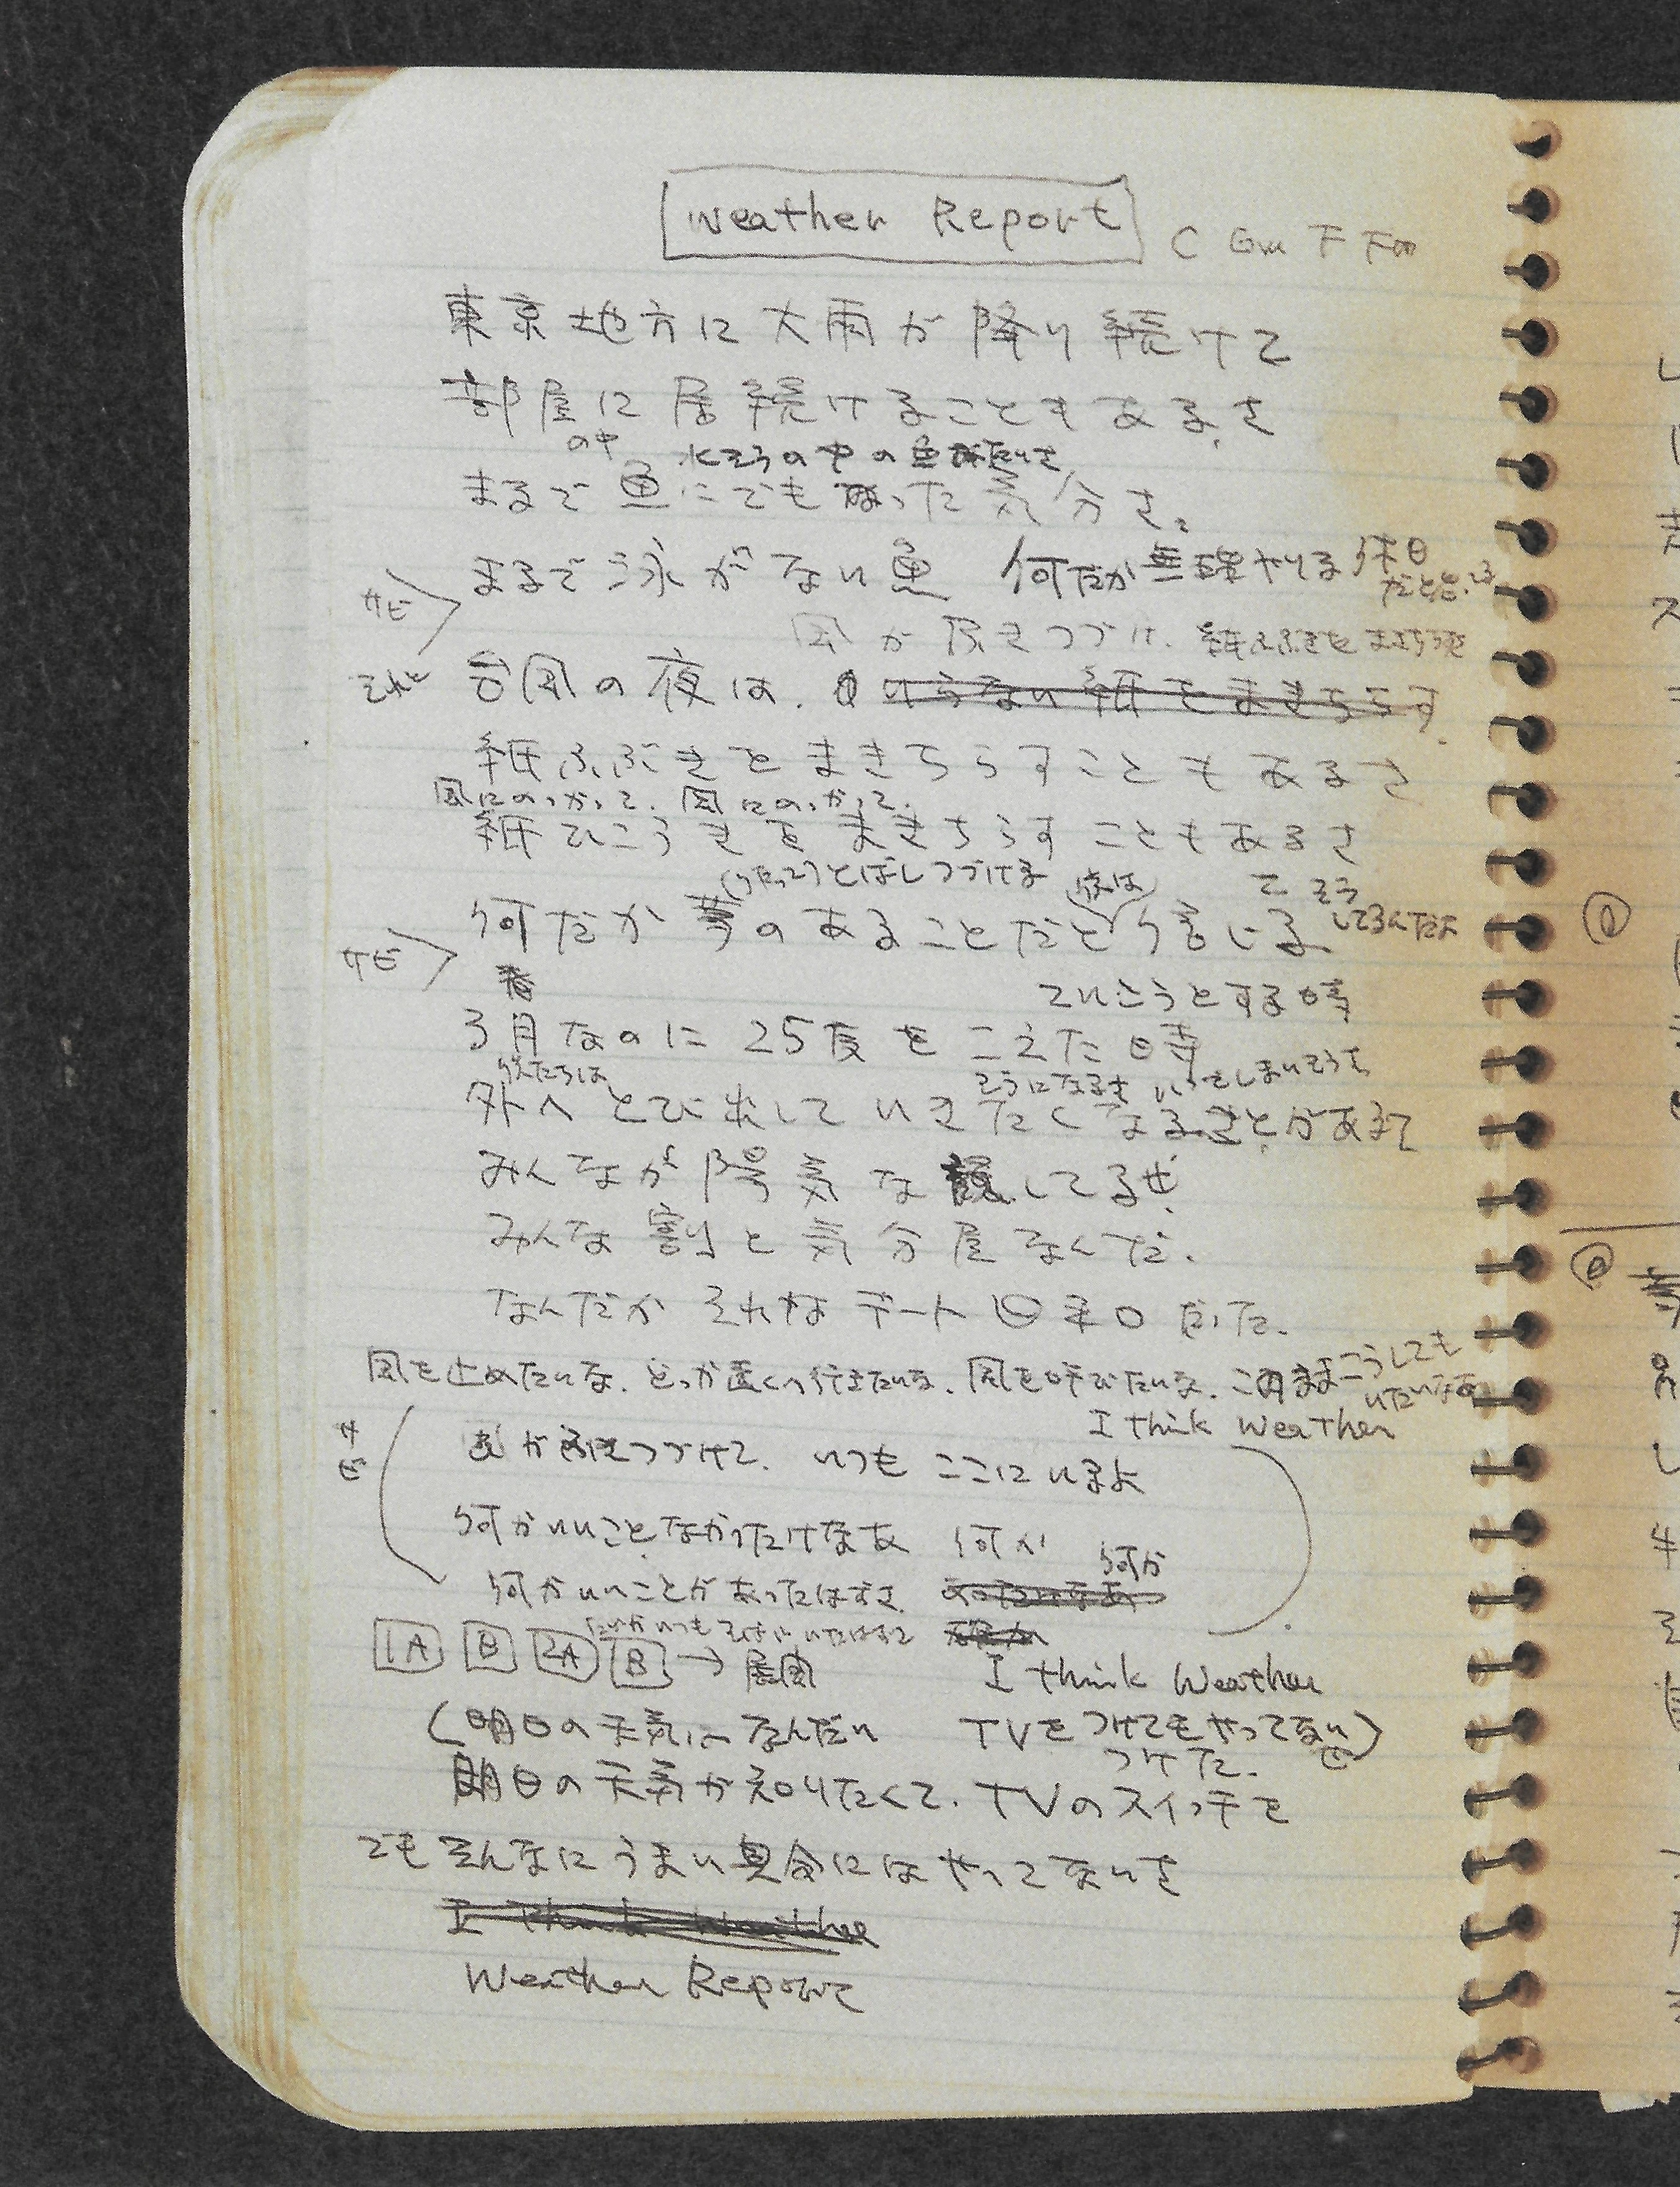 Weather Report C Gm F Fm
東京地方に大雨が降り続けて
部屋に居続けることもあるさ
の中 水そうの中の魚みたいさ
まるで魚にでもなった気分さ。
サビ まるで泳がない魚 何だか無理やりる休日だと
風が 紙ふぶきをまきちらす
それと 台風の夜は. いらない紙をまきちらす
紙ふぶきをまきちらすこともあるさ
風にのっかって. 風にのっかって.
紙ひこうきをまきちらすこともあるさ
とばしつづける 夜は て そう
何だか夢のあることだと信じる してるんだよ
サビ
ていこうとする時
3月なのに25度をこえた時
そうになるさ いってしまいそうで
外へとび出していきたくなることがあるて
みんなが陽気な顔してるぜ.
みんな割と気分屋なんだ.
なんだかそれはデート日和だった.
風を止めたいな. どっか遠くへ行きたいな. 風を呼びたいな. このままこうしてもいたいなあ
I think weather
サビ がふきつづけて. いつもここにいるよ
何かいいことなかったけなあ 何か 何か
何かいいことがあったはずさ.
1A B 2A B → 展開 I think Weather
(明日の天気はなんだい TVをつけてもやってない)
つけた.
明日の天気が知りたくて. TVのスイッチを
でもそんなにうまい具合にはやってないさ
I think Weather
Weather Report